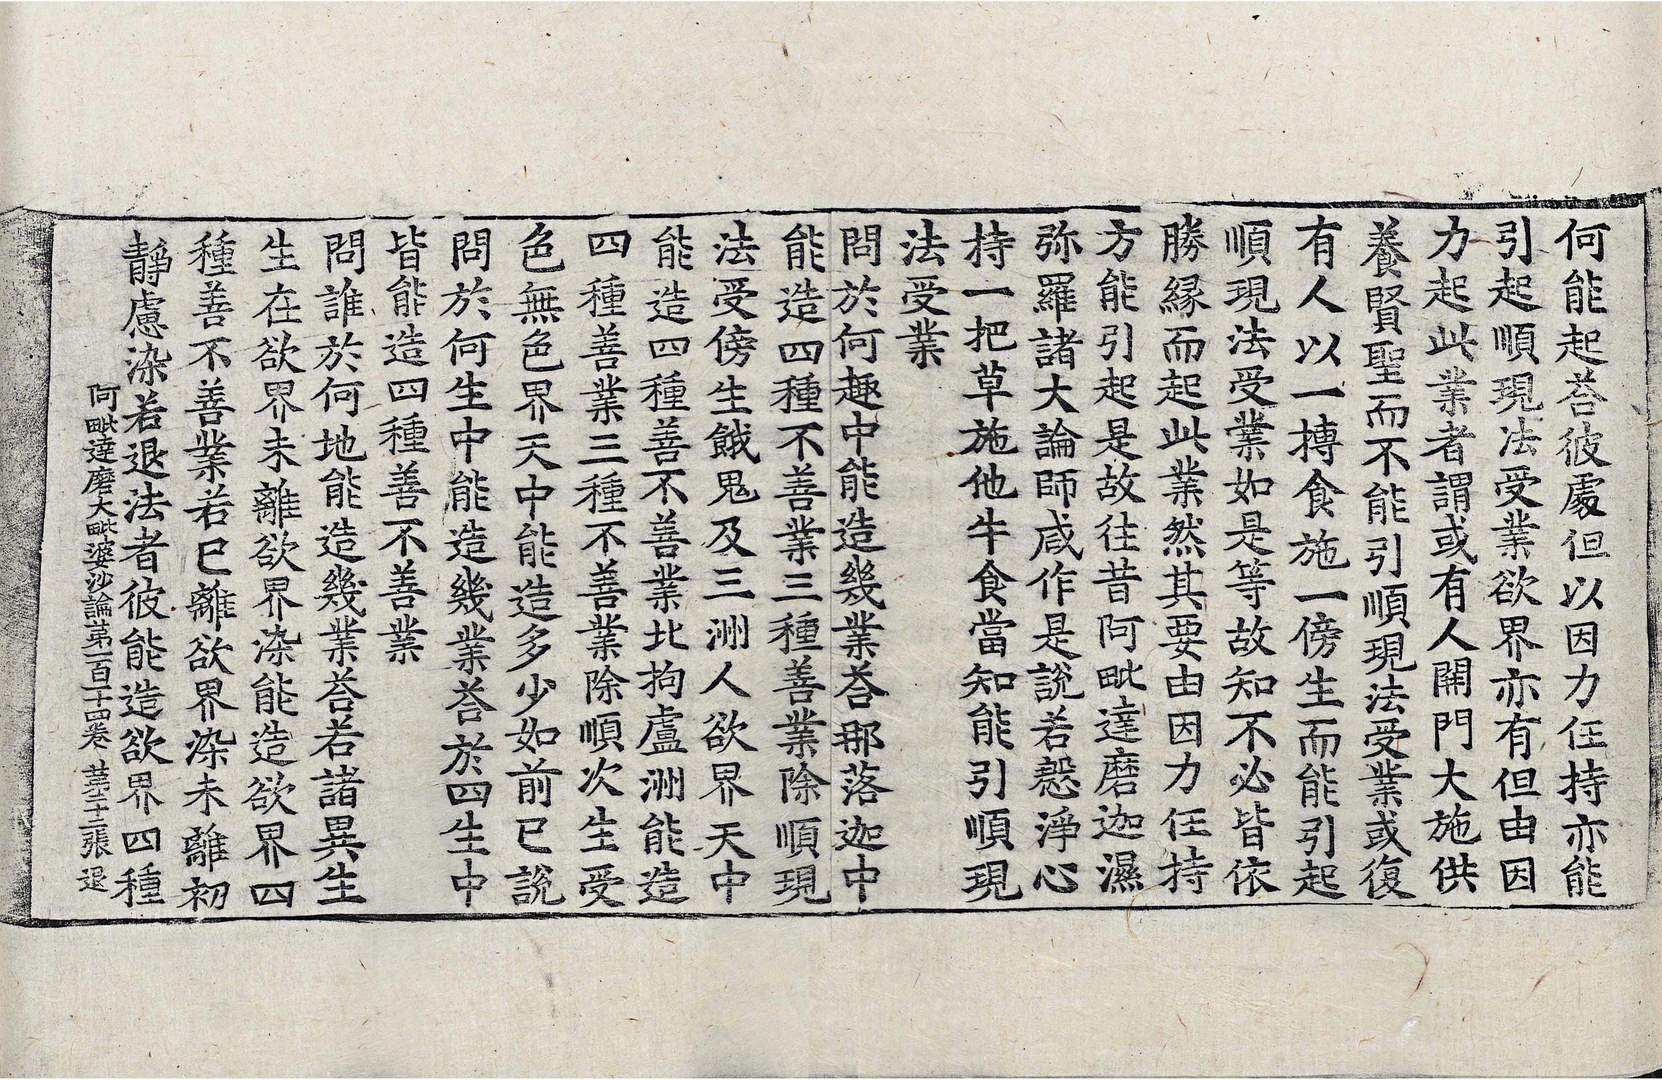 何能起荅彼處但以因力任持亦能
引起順現法受業欲界亦有但由因
力起此業者謂或有人開門大施供
養賢聖而不能引順現法受業或復
有人以一摶食施一傍生而能引起
順現法受業如是等故知不必皆依
勝縁而起此業然其要由因力任持
方能引起是故往昔阿毗達磨迦濕
弥羅諸大論師咸作是說若慇淨心
持一把草施他牛食當知能引順現
法受業
問於何趣中能造幾業荅那落迦中
能造四種不善業三種善業除順現
法受傍生餓鬼及三洲人欲界天中
能造四種善不善業北拘盧洲能造
四種善業三種不善業除順次生受
色無色界天中能造多少如前已說
問於何生中能造幾業荅於四生中
皆能造四種善不善業
問誰於何地能造幾業荅若諸異生
生在欲界未離欲界染能造欲界四
種善不善業若已離欲界染未離初
靜慮染若退法者彼能造欲界四種
阿毗達磨大毗婆沙論第一百一十四卷 第二十二張 退